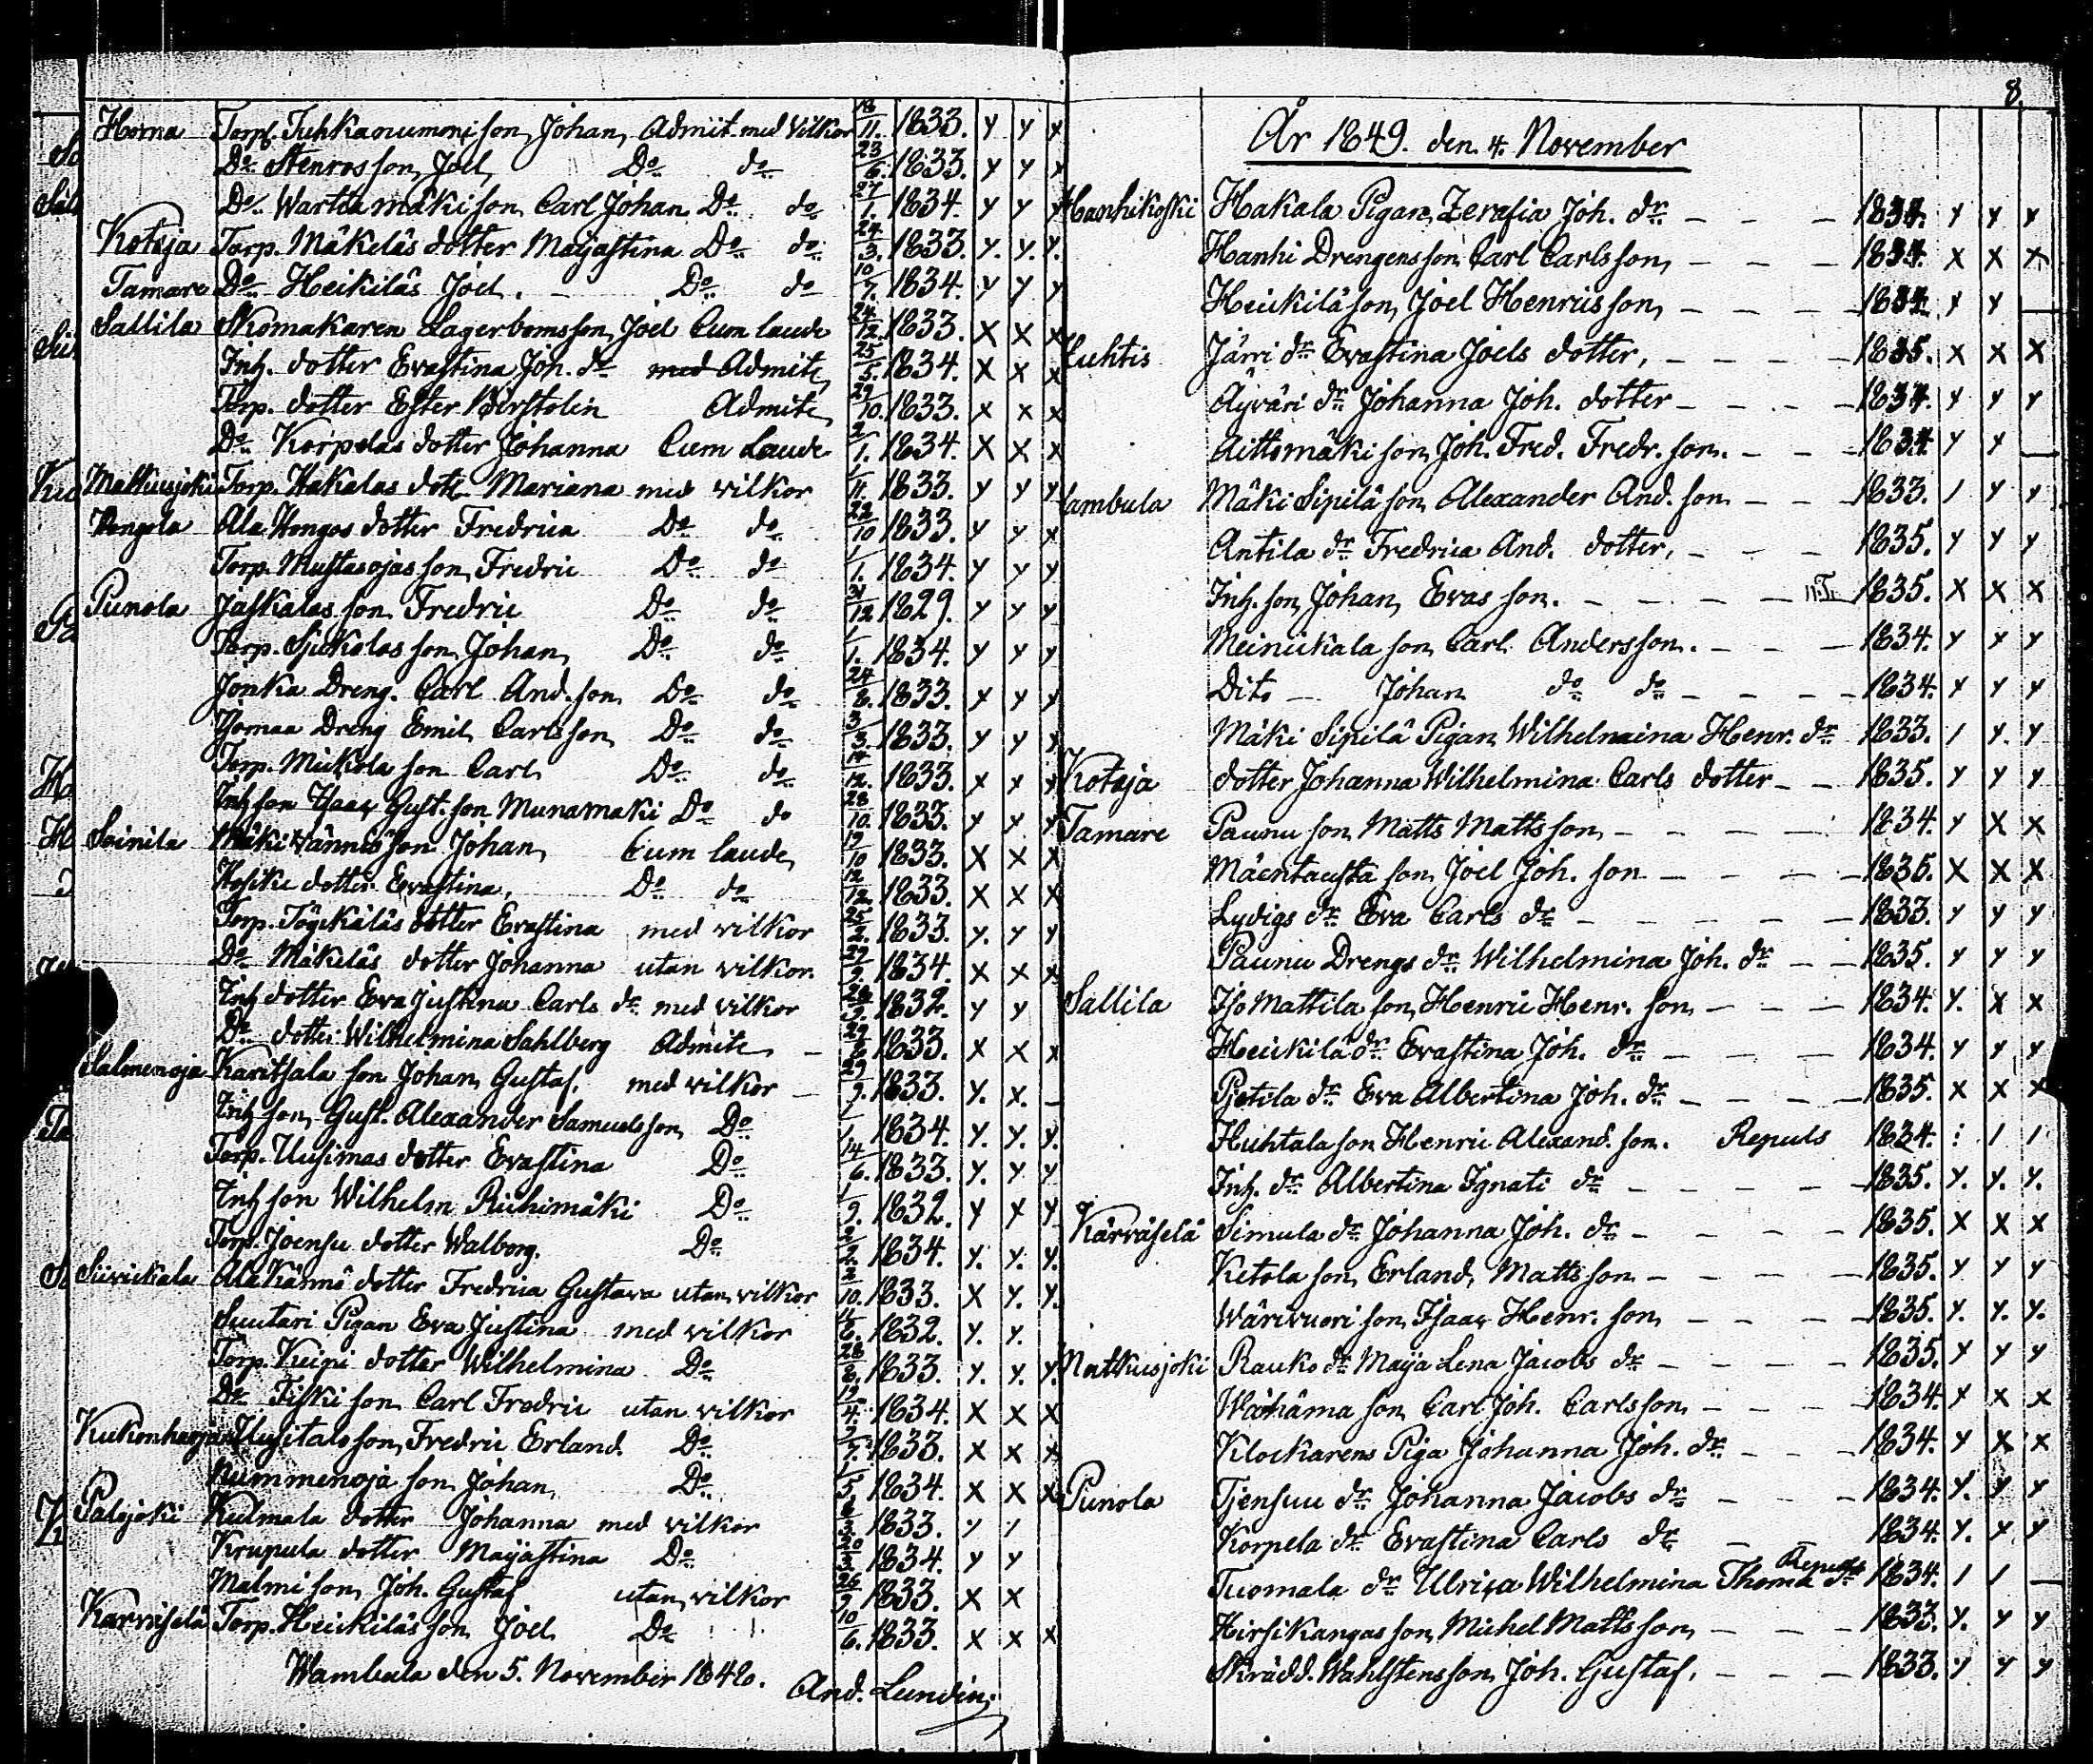 Horna Torp. Tuhkanummi son Johan, Admit. med Vilkor 18/11. 1833. y y y
Do Stenros son, Joel, Do do 23/6. 1833. y y x
Do. Wartiamäki son Carl Johan Do do 27/1. 1834. y y y
Kotoja Torp. Mäkeläs dotter Majastina Do do 24/3. 1833. y. y. y.
Tamare Do Heikiläs Joel. - Do do 10/7. 1834. y y y
Sallila Skomakaren Lagerbomsson, Joel Cum laude 24/12. 1833. x x x
Inh. dotter Evastina Joh. dr med Admite 25/5. 1834. x x x
Torp. dotter Ester Admite 29/10. 1833. x x x
Do Korpelas dotter Johanna Cum Laude 2/1. 1834. x x x
Matkusjoki Torp. Hakalas dott Mariana med vilkor 1/11. 1833. y y y
Pengola Ala Hongos dotter Fredrica Do do 22/10 1833. y y x
Torp. Mustasojas son, Fredric Do do 1/1. 1834. y y y
Punola Jaskalas son Fredric Do do 31/12 1829. y y y
Torp. Sjukolas son, Johan, Do do 1/1. 1834. y y y
Jonka Dreng. Carl And. son Do do 24/8. 1833. y y y
Tjomaa Dreng Emil Carlsson Do do 3/3. 1833. y y x
Torp. Mickola son Carl Do do 12. 1833. x x x
Inh son Isaac Gust. son Munamaki Do do 28/10. 1833. y y y
Soinila Mäkivännis son Johan, Cum laude, 19/10 1833. x x x
Hosike dotter Evastina. Do do 12/12. 1833. x x x
Torp. Jögekäläs dotter Evastina med vilkor 25/2. 1833. y. y y
Do Mäkeläs dotter Johanna utan vilkor. 27/9. 1834. x x x
Inh dotter Eva Justina Carls dr med vilkor 1832. y y
Do dotter Wilhelmina Sahlberg Admite - 1833. x x x
Salmenoja Karitsala son Johan Gustaf. med vilkor - 29/9. 1833. y. x. -
Inh son, Gust. Alexander Samuelsson Do 1/1. 1834. y. y. y.
Torp. Uusimas dotter Evastina Do 14/6. 1833. y. y y
Inh son Wilhelm Riihimäki Do 1/9. 1832. y y y
Torp. Joensu dotter Walborg. Do 2/2. 1834. y. y. y.
Siivickala Ala Kännö dotter Fredrica Gustava utan vilkor 2/10. 1833. x y. y.
Suutari Pigan Eva Justina med vilkor 1832. y. y.
Torp. Kuipi dotter Wilhelmina Do 28/8. 1833. y. y. y.
Do Fiski son Carl Fredric utan vilkor 19/4. 1834. x x x
Kukonharja Uusitalo son, Fredric Erland Do 1833. x x x
Nummenoja son Johan, Do 1/5. 1834. x x x
Palojoki Kulmala dotter Johanna med vilkor 1833. y y
Krupula dotter Majastina Do 20/3. 1834. y y
Malmi son, Joh. Gustaf utan vilkor 26/9 1833. x x
Karväselä Torp. Heickiläs son Joel Do 10/6. 1833. x x x
Wambula den 5. November 1848. And. Lundin;
8.
År 1849. den 4. November
Hanhikoski Hakala Pigan, Zerafia Joh. dr - - - 1834. y y y
Hanhi Drengens son Carl Carlsson, - - - 1834. x x x
Heickilä son, Joel Henricsson, - - - 1834. y y -
Huhtis Järri dr Evastina Joels dotter, - - - 1835. x x x
Äyräri dr Johanna Joh. dotter - - - 1834. y y y
Aittomäki son, Joh. Fred. Fredr. son. - - - 1834. y y -
Sambula Mäki Sipilä son, Alexander And. son - - - 1833. / y y
Antila dr Fredrica And. dotter, - - - 1835. y y y
Inh. son, Johan, Evas son. - - - - 1835. x x x
Meinickala son, Carl Andersson. - - - 1834. y y y
Dito - Johan do do - - - 1834. y y y
Mäki Sipilä Pigan Wilhelmina Henr. dr 1833. / y. y
Kotoja dotter Johanna Wilhelmina Carls dotter - - 1835. y y y
Tamare Paunu son, Matts Mattsson, - - - - 1834. y x x
Mäentausta son, Joel Joh. son - - - - 1835. x x x
Lydigs dr Eva Carls dr - - - - - 1833. y y y
Paunu Drengs dr Wilhelmina Joh. dr - - 1835. y y y
Sallila Iso Mattila son, Henric Henr. son - - - 1834. y. x x
Heickilä dr Evastina Joh. dr - - - 1834. y y y
Pjetila dr Eva Albertina Joh. dr - - - - 1835. x x x
Huhtala son Henric Alexand. son. Repuls 1834. : / /
Inh. dr Albertina Ignati dr - - - - - 1835. y. y. y.
Kärväselä Simula dr Johanna Joh. dr - - - - 1835. x x x
Ketola son, Erland, Mattsson - - - - 1835. y y y
Wärivuori son, Isaac Henr. son, - - - 1835. y. y. y.
Matkusjoki Rauko dr Maija Lena Jacobs dr - - - - 1835. y y y
Wähäma son Carl Joh. Carlsson - - - 1834. y x x
Klockarens Piga Johanna Joh. dr - - - 1834. y x x
Punola Tjensuu dr Johanna Jacobs dr - - - 1834. y. y y
Korpela dr Evastina Carls dr - - 1834. y. y y
Tuomala dr Ulrica Wilhelmina Thoma dr Repuls 1834. / / -
Hirsikangas son, Michel Mattsson, - - - 1833. y. y y
Skrädd. Wahlstensson, Joh. Gustaf, - - - 1833. y y y